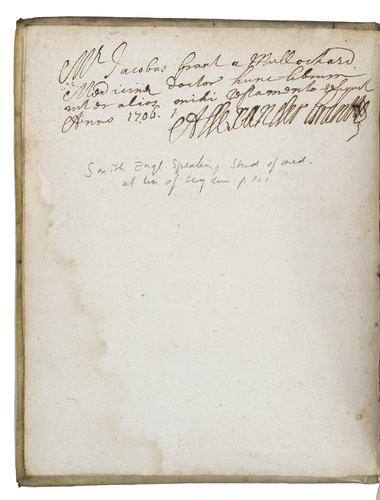 Mr Jacobus Grant a Mullochard
Medicinæ Doctor hunc librum
inter alios mihi Testamento
Anno 1706. Allexander
Smith Engl Speaking Stud of med.
at Un of Leyden p 101